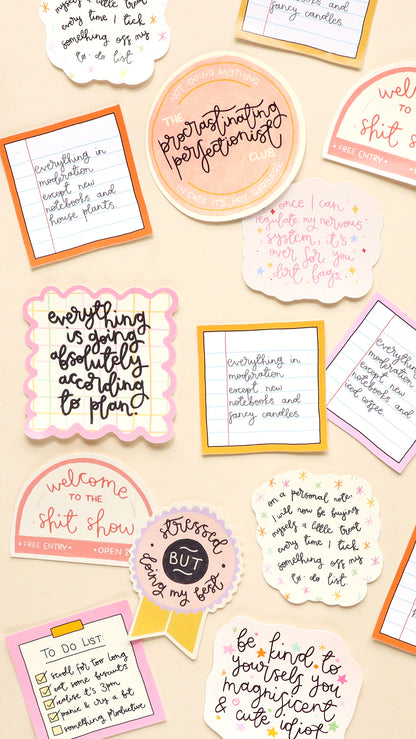 every time I tick
something off my
to do list.
notebooks and
fancy candles.
NOT DOING ANYTHING
THE
procrastinating
perfectionist
CLUB
IN CASE IT'S HOT GARBAGE
TO THE
shit sh
• FREE ENTRY •
everything in
moderation
except new
notebooks and
house plants.
once I can
regulate my nervous
system, it's
over for you
dirt bags.
everything
is going
absolutely
according
to plan.
everything in
moderation
except new
notebooks and
fancy candles.
everything in
moderation
except new
notebooks and
iced coffee
welcome
TO THE
shit show
FREE ENTRY • • OPEN 2
stressed
BUT
doing my best
on a personal note
I will now be buying
myself a little treat
every time I tick
something off my
to do list.
TO DO LIST:
scroll for too long
eat some biscuits
realise it's 3pm
panic & cry a bit
something productive
be kind to
yourself you
magnificent
& cute idiot